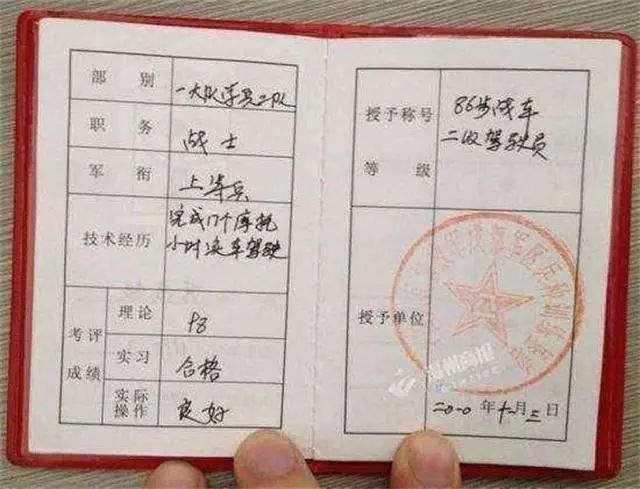 部 别 一大队学员二队
职 务 战士
军 衔 上等兵
技术经历 完成17个摩托
小时乘车驾驶
考评
成绩
理论 98
实习 合格
实际
操作 良好
授予称号 86步战车
二级驾驶员
等 级
授予单位
二〇一〇年十一月三日